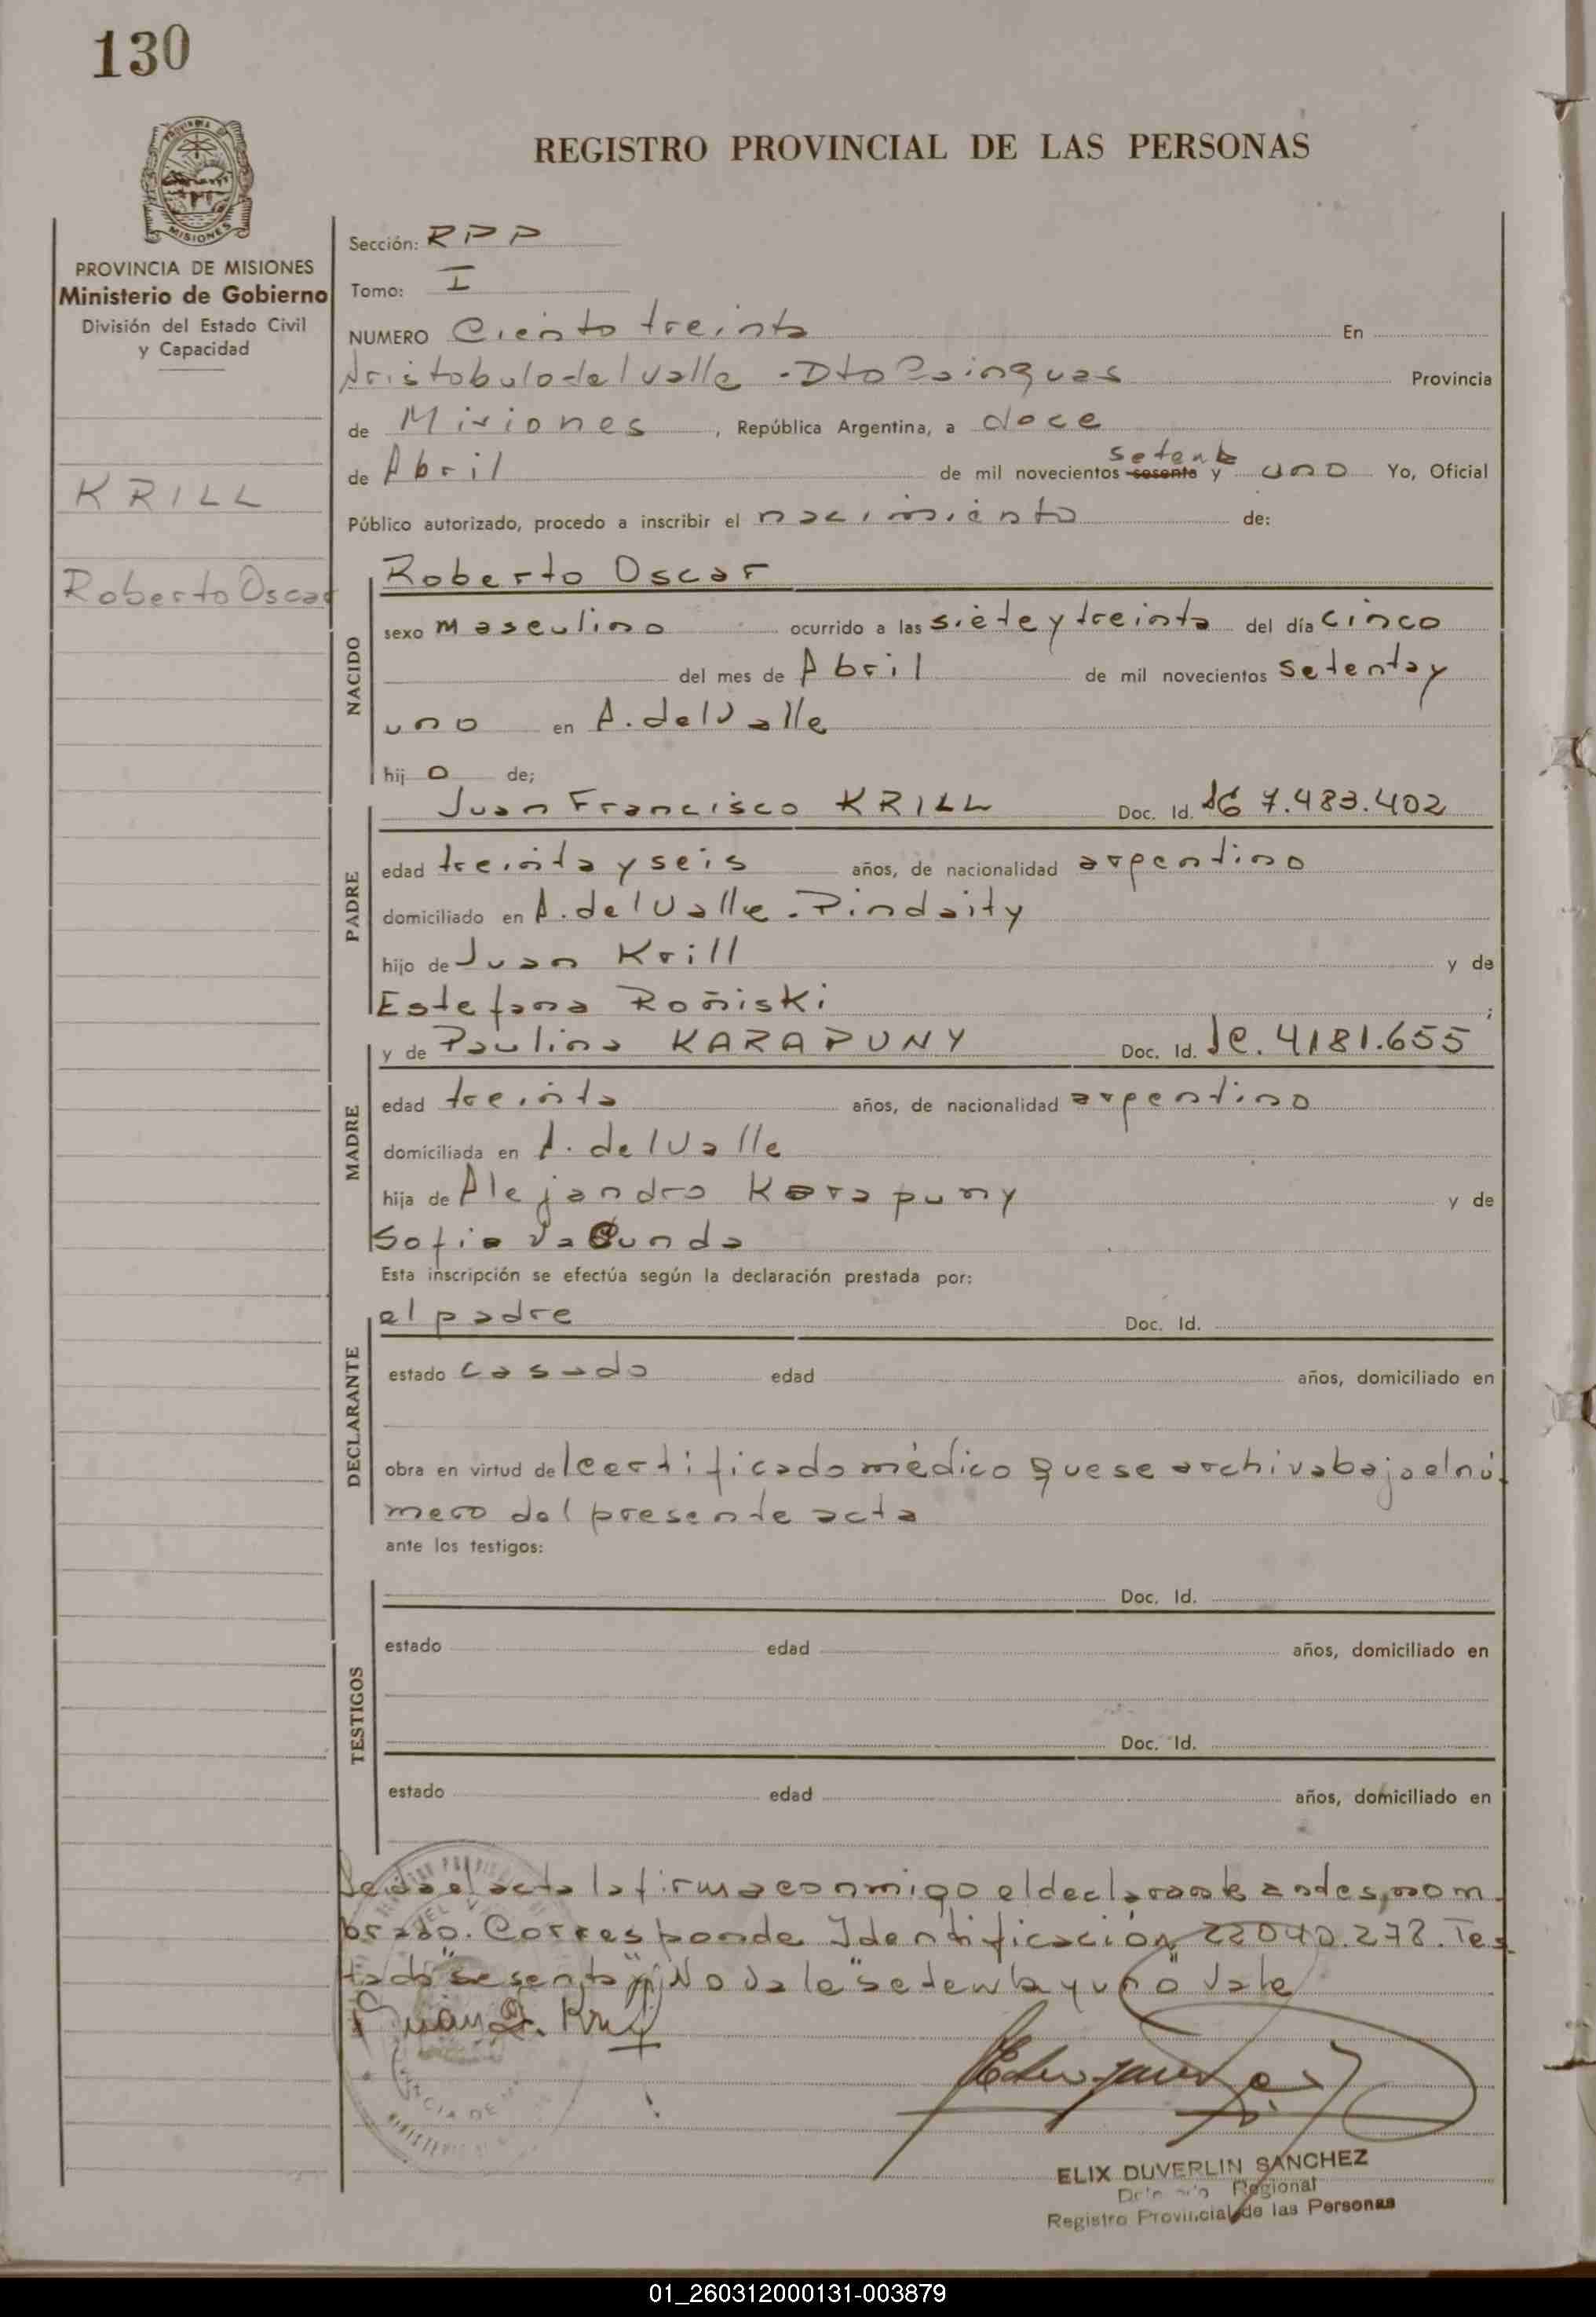 130
REGISTRO PROVINCIAL DE LAS PERSONAS
MISIONES
PROVINCIA DE MISIONES
Ministerio de Gobierno
División del Estado Civil
y Capacidad
KRILL
Roberto Oscar
Sección: RPP
Tomo: I
NUMERO Ciento treinta En
Aristobulo del Valle - Dto Cainguas Provincia
de Misiones, República Argentina, a doce
de Abril de mil novecientos sesenta setenta y uno Yo, Oficial
Público autorizado, procedo a inscribir el nacimiento de:
NACIDO
Roberto Oscar
sexo masculino ocurrido a las siete y treinta del día cinco
del mes de Abril de mil novecientos setenta y
uno en A. del Valle
hijo de;
PADRE
Juan Francisco KRILL Doc. Id. 7.483.402
edad treinta y seis años, de nacionalidad argentino
domiciliado en A. del Valle. Pindaity
hijo de Juan Krill y de
Estefana Roñiski ;
MADRE
y de Paulina KARAPUNY Doc. Id. 4181.655
edad treinta años, de nacionalidad argentino
domiciliada en A. del Valle
hija de Alejandro Karapuny y de
Sofia
Esta inscripción se efectúa según la declaración prestada por:
DECLARANTE
el padre Doc. Id.
estado casado edad años, domiciliado en
obra en virtud del certificado médico que se archiva bajo el nú-
mero del presente acta
ante los testigos:
TESTIGOS
Doc. Id.
estado edad años, domiciliado en
Doc. Id.
estado edad años, domiciliado en
Leida el acta la firma conmigo el declarante antes nom-
brado. Corresponde Identificación 22040.278. Tes-
tado "sesenta" No vale "setenta y uno" Vale
ELIX DUVERLIN SANCHEZ
Regional
Registro Provincial de las Personas
01_260312000131-003879